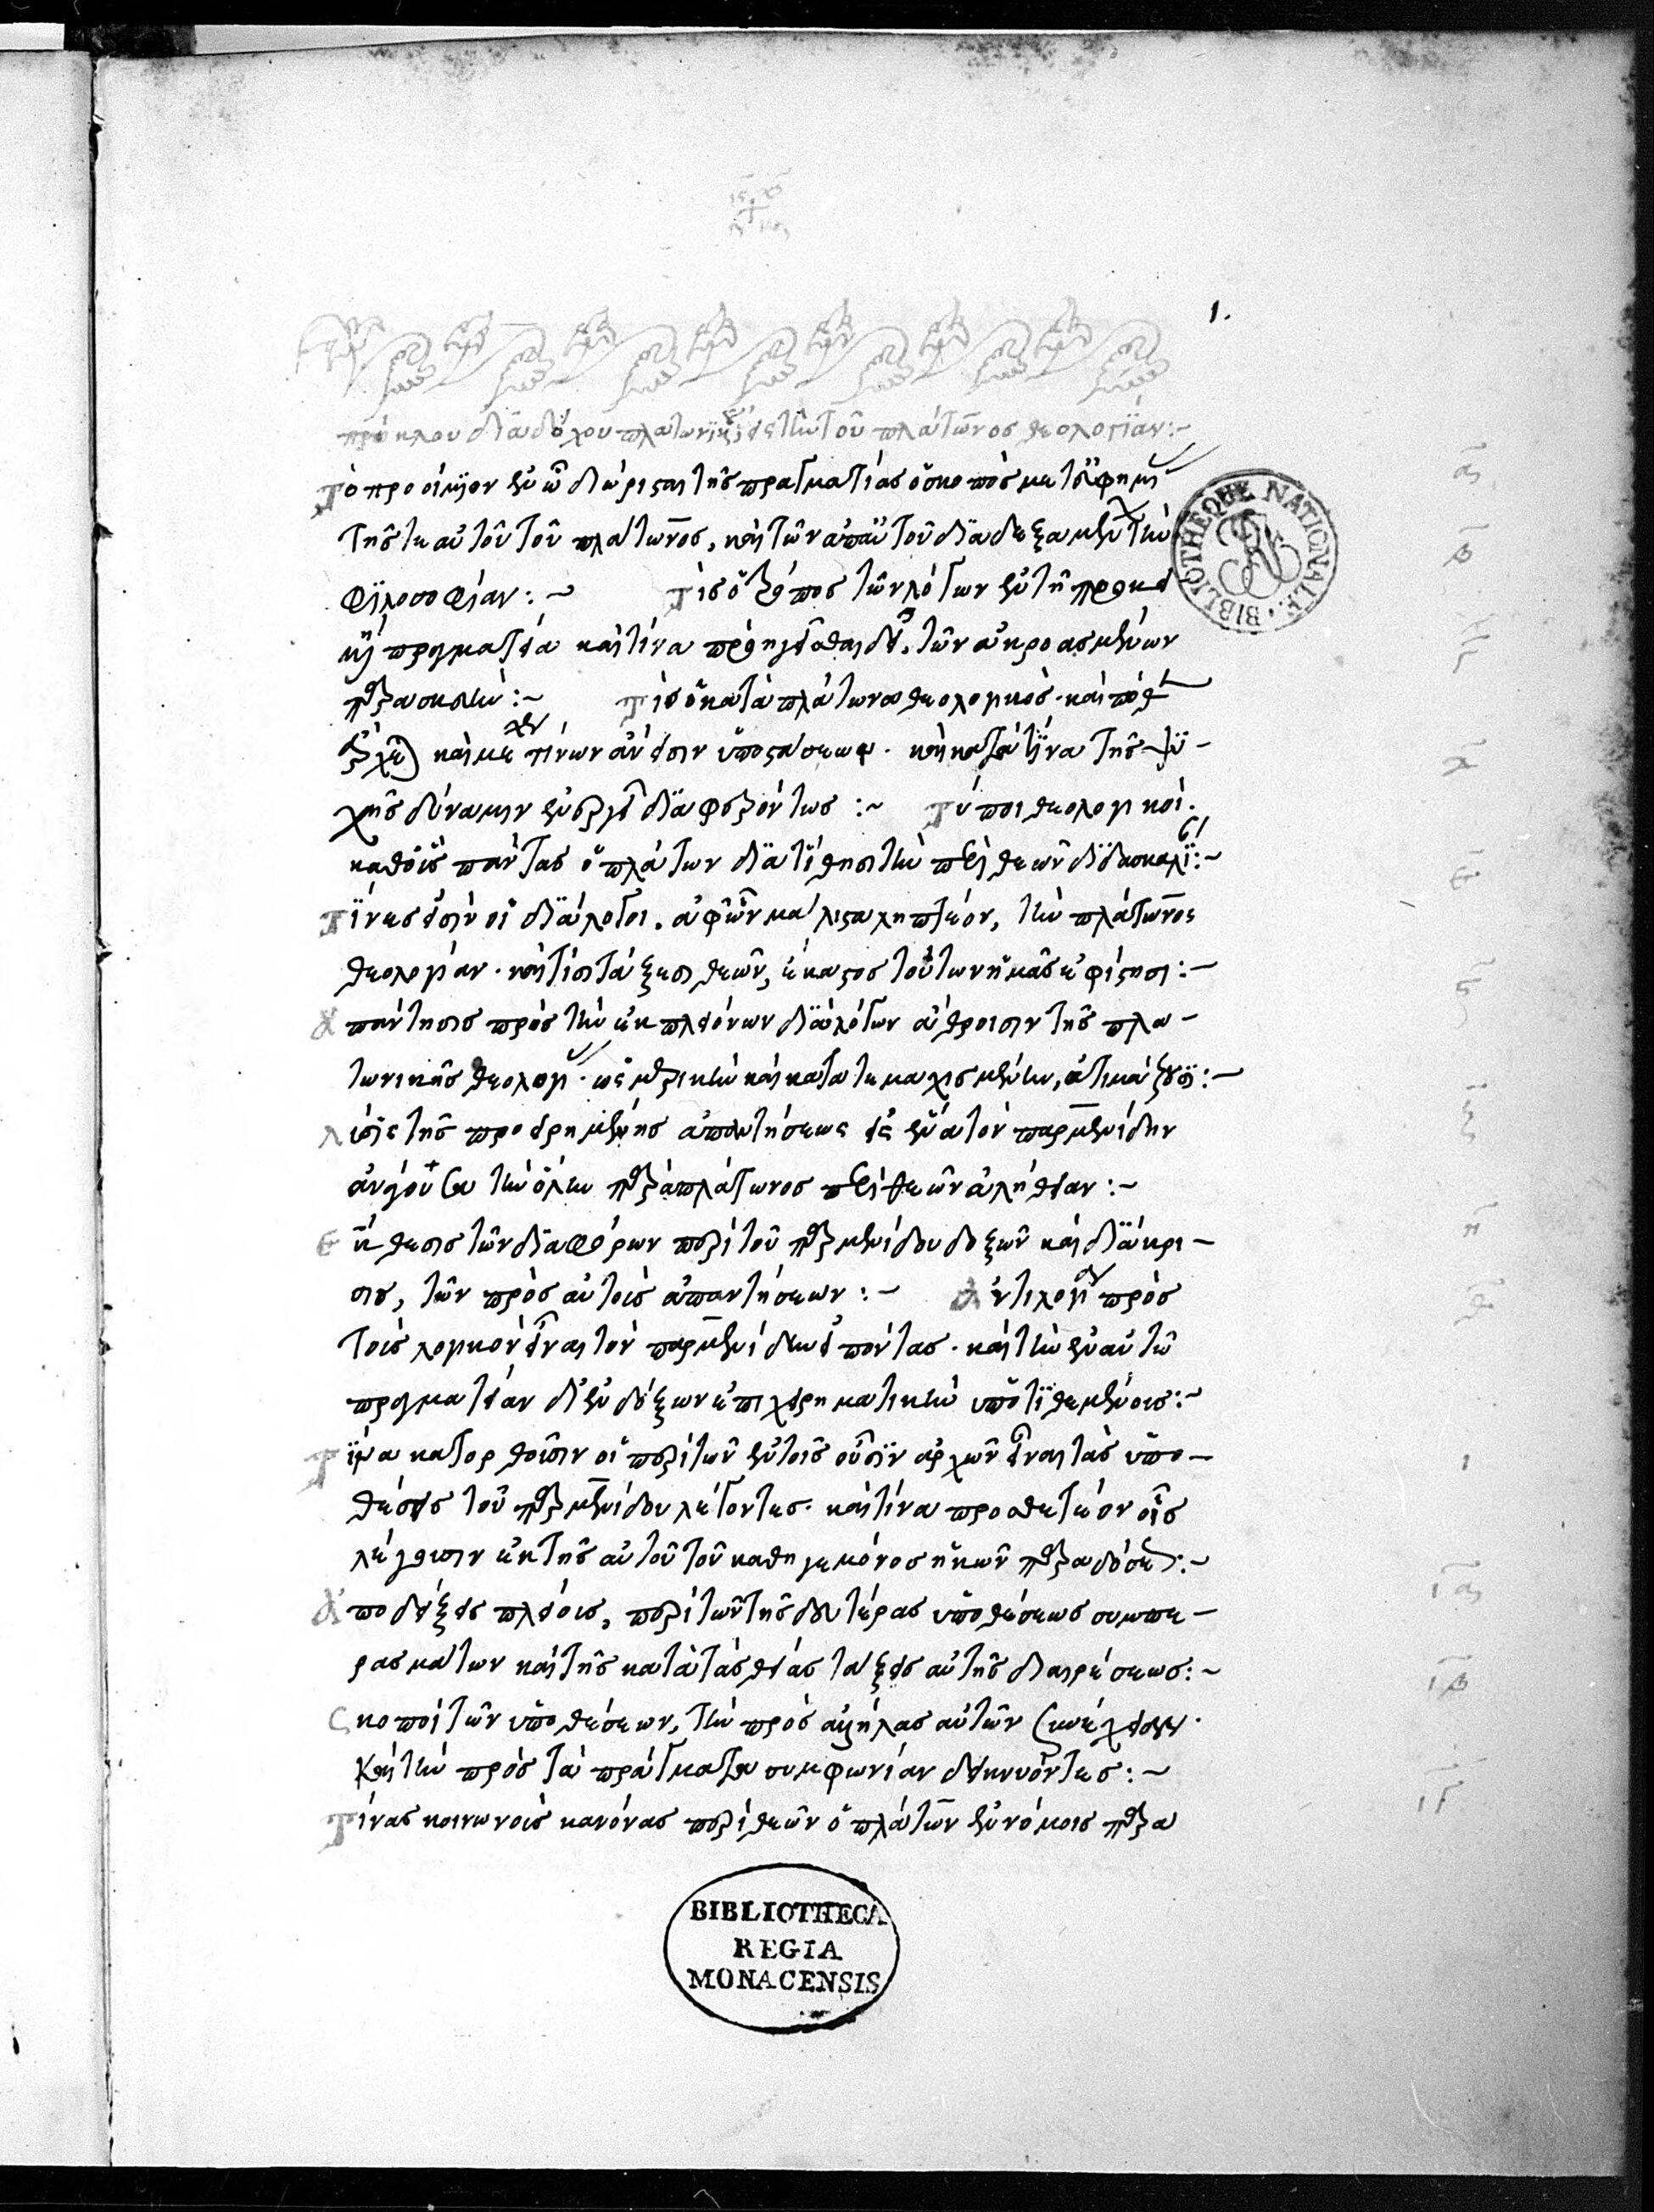 1.
πρόκλου διαδόχου πλατωνικοῦ, εἰς τὴν τοῦ πλάτωνος θεολογίαν:~
Τὸ προοίμιον ἐν ᾧ διώρισται τῆς πραγματίας ὁ σκοπὸς μετ' εὐφημίας
τῆς τε αὐτοῦ τοῦ πλάτωνος, καὶ τῶν ἀπ' αὐτοῦ διαδεξαμένων τὴν
φιλοσοφίαν:~ Τίς ὁ τρόπος τῶν λόγων ἐν τῇ προκει
μένῃ πραγματεία καὶ τίνα προηγεῖσθαι δεῖ, τῶν ἀκροασμένων
παρασκευήν:~ Τίς ὁ κατὰ πλάτωνα θεολογικὸς· καὶ πόθεν
ἄρχεται καὶ μέχρι τίνων ἄνεισιν ὑποστάσεων· καὶ κατὰ τίνα τῆς ψυ-
χῆς δύναμιν ἐνεργεῖ διαφερόντως:~ Τύποι θεολογικοὶ·
καθ' οἷς πάντας ὁ πλάτων διατίθησι τὴν περὶ θεῶν διδασκαλίαν:~
Τίνες εἰσὶν οἱ διάλογοι, ἀφ' ὧν μάλιστα ληπτέον, τὴν πλάτωνος
θεολογίαν· καὶ τίσι τάξεσι θεῶν, ἕκαστος τούτων ἡμᾶς ἐφίστησι:~
Ἀπάντησις πρὸς τὴν ἐκ πλειόνων διαλόγων ἄθροισιν τῆς πλα-
τωνικῆς θεολογίας· ὡς μερικὴν καὶ κατατεμαχισμένην, ἀτιμάζουσι:~
Λύσις τῆς προειρημένης ἀπαντήσεως εἰς ἕνα τὸν παρμενίδην
ἀνάγουσα τὴν ὅλην παρὰ πλάτωνος περὶ θεῶν ἀλήθειαν:~
Ἔκθεσις τῶν διαφόρων περὶ τοῦ παρμενίδου δοξῶν καὶ διάκρι-
σις, τῶν πρὸς αὐτοὶς ἀπαντήσεων:~ Ἀντιλογία πρὸς
τοὶς λογικὸν εἶναι τὸν παρμενίδην εἰπόντας· καὶ τὴν ἐν αὐτῷ
πραγματείαν δι' ἐνδόξων ἐπιχειρηματικὴν ὑποτιθεμένοις:~
Τίνα κατορθοῖσιν οἱ περὶ τῶν ἐν τοῖς οὖσιν ἀρχῶν εἶναι τὰς ὑπο-
θέσεις τοῦ παρμενίδου λέγοντες· καὶ τίνα προσθετέον οἷς
λέγοισιν ἐκ τῆς αὐτοῦ τοῦ καθηγεμόνος ἡμῶν παραδόσεως:~
Ἀποδείξεις πλείοις, περὶ τῶν τῆς δευτέρας ὑποθέσεως συμπε-
ρασμάτων καὶ τῆς κατὰ τὰς θείας τάξεις αὐτῆς διαιρέσεως:~
Σκοποὶ τῶν ὑποθέσεων, τὴν πρὸς ἀλλήλας αὐτῶν συνέχειαν·
Καὶ τὴν πρὸς τὰ πράγματα συμφωνίαν δεικνυόντες:~
Τίνας κοινωνοὶς κανόνας περὶ θεῶν ὁ πλάτων ἐν νόμοις παρα
α
β
γ
δ
ε
ς
ζ
η
θ
ι
ια
ιβ
ιγ
BIBLIOTHEQUE NATIONALE
BIBLIOTHECA
REGIA
MONACENSIS